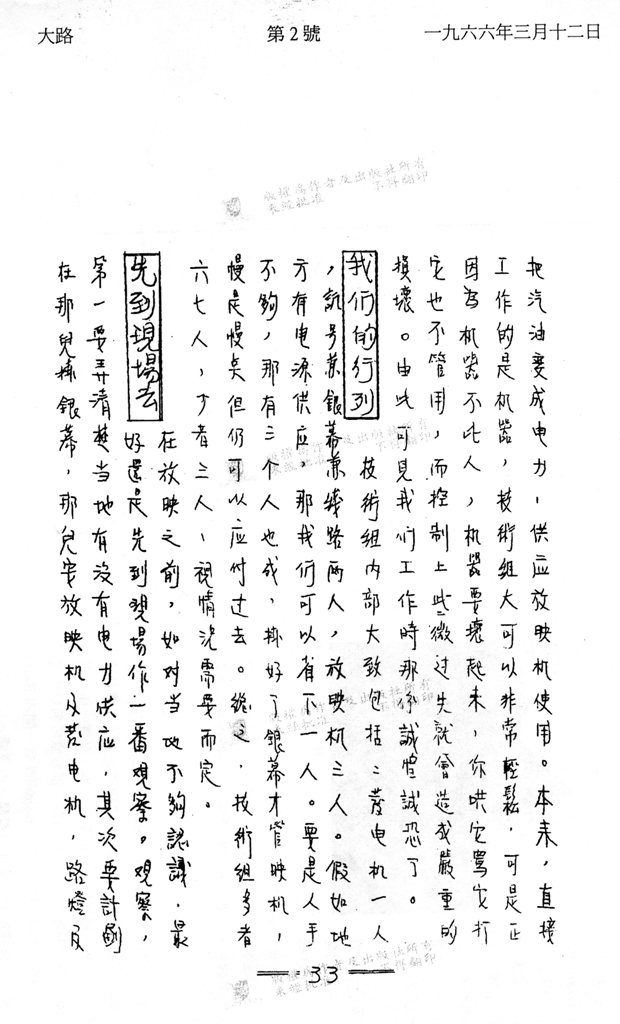 大路
第2號
一九六六年三月十二日
把汽油变成电力，供应放映机使用。本来，直接
工作的是机器，技術组大可以非常輕鬆，可是正
因为机器不比人，机器要壞起来，你哄它罵它打
它也不管用，而控制上些微过失就會造成嚴重的
損壞。由此可見我们工作時那份誠惶誠恐了。
我们的行列
技術组内部大致包括：发电机一人
，訊号兼銀幕兼线路两人，放映机三人。假如地
方有电源供应，那我们可以省下一人。要是人手
不夠，那有三个人也成，掛好了銀幕才管映机，
慢是慢矣但仍可以应付过去。總之，技術组多者
六七人，少者三人，視情况需要而定。
先到現場去
在放映之前，如对当地不夠認識，最
好還是先到現場作一番观察。观察，
第一要弄清楚当地有没有电力供应，其次要計劃
在那兒掛銀幕，那兒安放映机及发电机，路燈及
版權為作者及出版社所有
未經批准 不得翻印
33